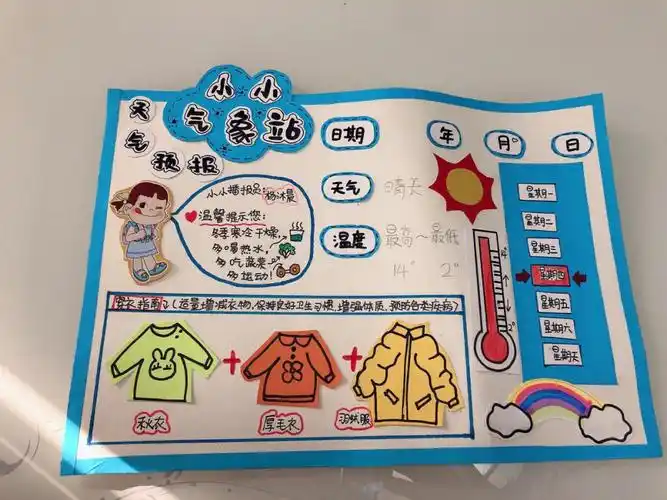 小小
气象站
天气预报
日期 年 月 日
天气 晴天
温度 最高～最低
14° 2°
小小播报员：杨沐晨
温馨提示您：
冬季寒冷干燥，
多喝热水，
多吃蔬菜
多运动！
14°
2°
星期一
星期二
星期三
星期四
星期五
星期六
星期天
穿衣指南（适量增减衣物，保持良好卫生习惯，增强体质，预防各类疾病）
秋衣
厚毛衣
羽绒服